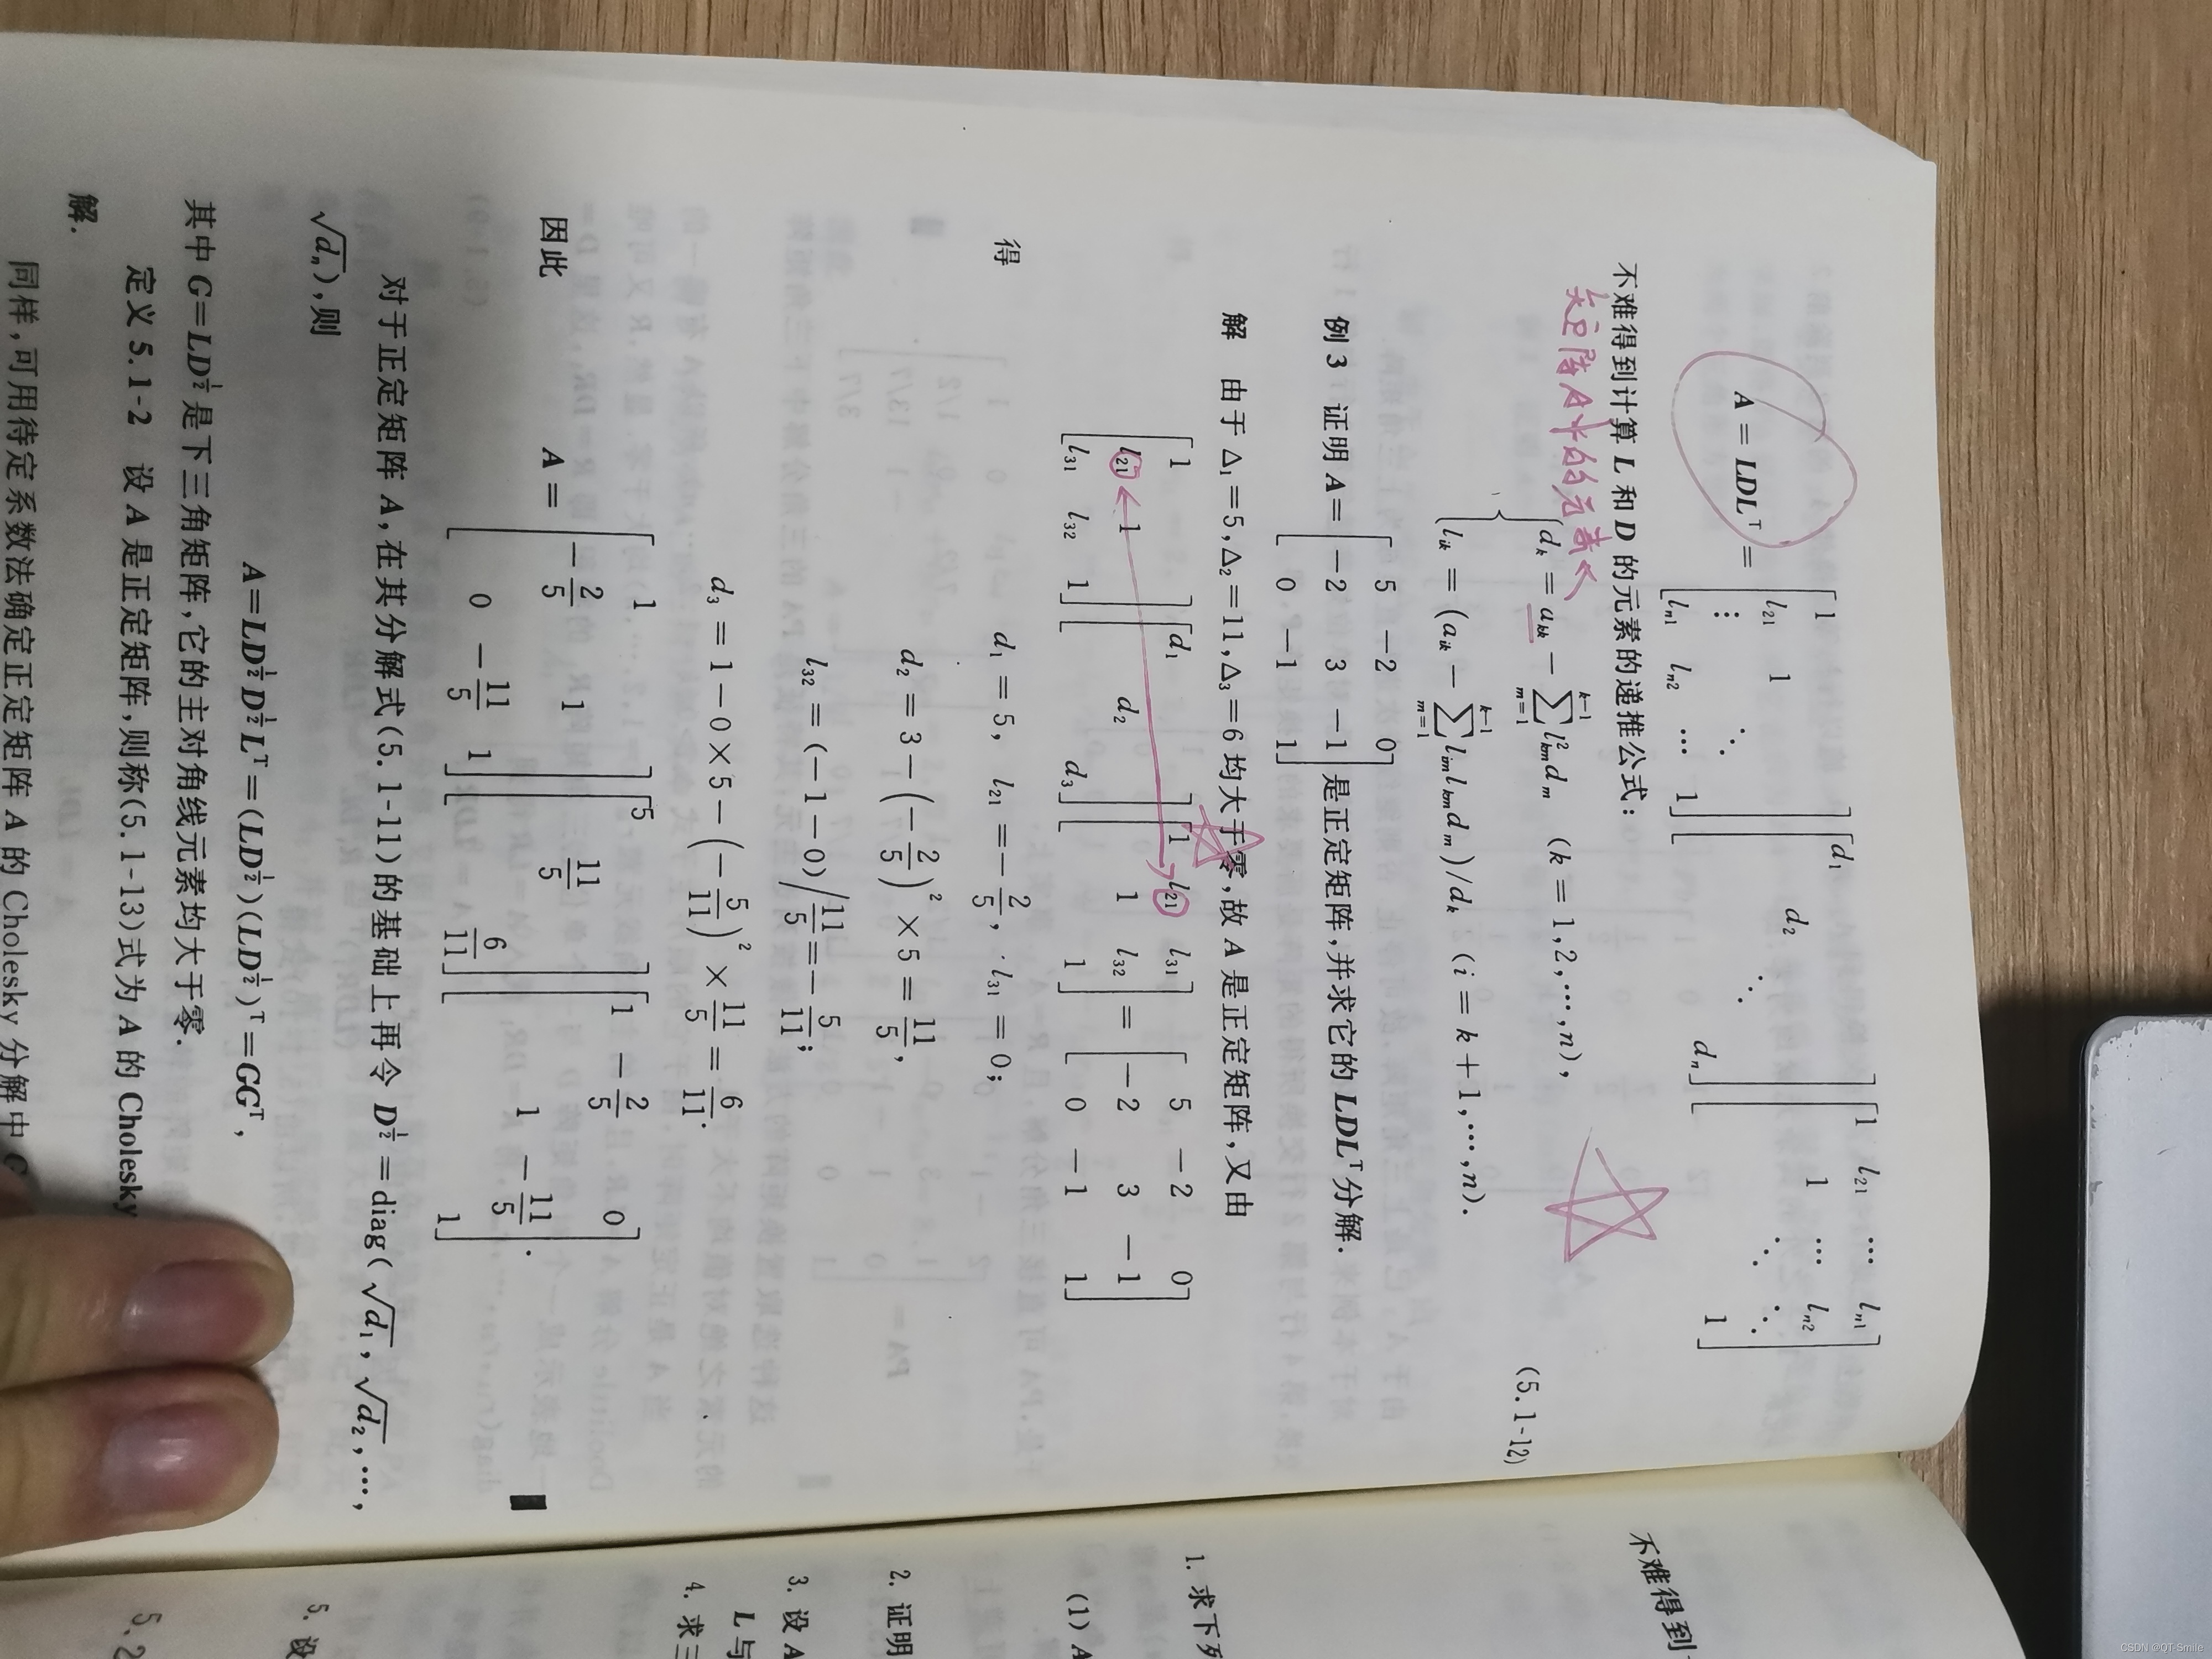 A = LDLᵀ = [1; l₂₁ 1; ⋮ ⋱; lₙ₁ lₙ₂ ⋯ 1] [d₁; d₂; ⋱; dₙ] [1 l₂₁ ⋯ lₙ₁; 1 ⋯ lₙ₂; ⋱ ⋱; 1]
不难得到计算 L 和 D 的元素的递推公式:
矩阵A中的元素
{ dₖ = aₖₖ − ∑_{m=1}^{k−1} l²ₖₘdₘ (k = 1,2,…,n),
lᵢₖ = (aᵢₖ − ∑_{m=1}^{k−1} lᵢₘlₖₘdₘ)/dₖ (i = k+1,…,n).
(5.1-12)
例 3 证明 A = [5 −2 0; −2 3 −1; 0 −1 1] 是正定矩阵,并求它的 LDLᵀ分解.
解 由于 Δ₁=5,Δ₂=11,Δ₃=6 均大于零,故 A 是正定矩阵,又由
[1; l₂₁ 1; l₃₁ l₃₂ 1] [d₁; d₂; d₃] [1 l₂₁ l₃₁; 1 l₃₂; 1] = [5 −2 0; −2 3 −1; 0 −1 1]
得
d₁ = 5, l₂₁ = −2/5, l₃₁ = 0;
d₂ = 3 − (−2/5)² × 5 = 11/5,
l₃₂ = (−1 − 0)/(11/5) = −5/11;
d₃ = 1 − 0 × 5 − (−5/11)² × 11/5 = 6/11.
因此
A = [1; −2/5 1; 0 −11/5 1] [5; 11/5; 6/11] [1 −2/5 0; 1 −11/5; 1].
对于正定矩阵 A,在其分解式(5.1-11)的基础上再令 D^{1/2} = diag(√d₁,√d₂,…,
√dₙ),则
A=LD^{1/2}D^{1/2}Lᵀ=(LD^{1/2})(LD^{1/2})ᵀ=GGᵀ,
其中 G=LD^{1/2}是下三角矩阵,它的主对角线元素均大于零.
定义 5.1-2 设 A 是正定矩阵,则称(5.1-13)式为 A 的 Cholesky
解.
同样,可用待定系数法确定正定矩阵 A 的 Cholesky 分解中 G
不难得到
1. 求下列
(1) A
2. 证明
3. 设 A
L 与
4. 求三
5. 设
5.2
CSDN @QT-Smile